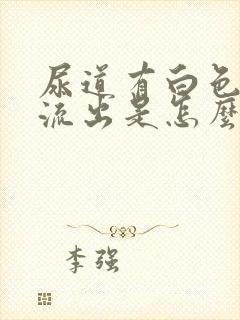 尿道有白色
流出是怎麼
李强